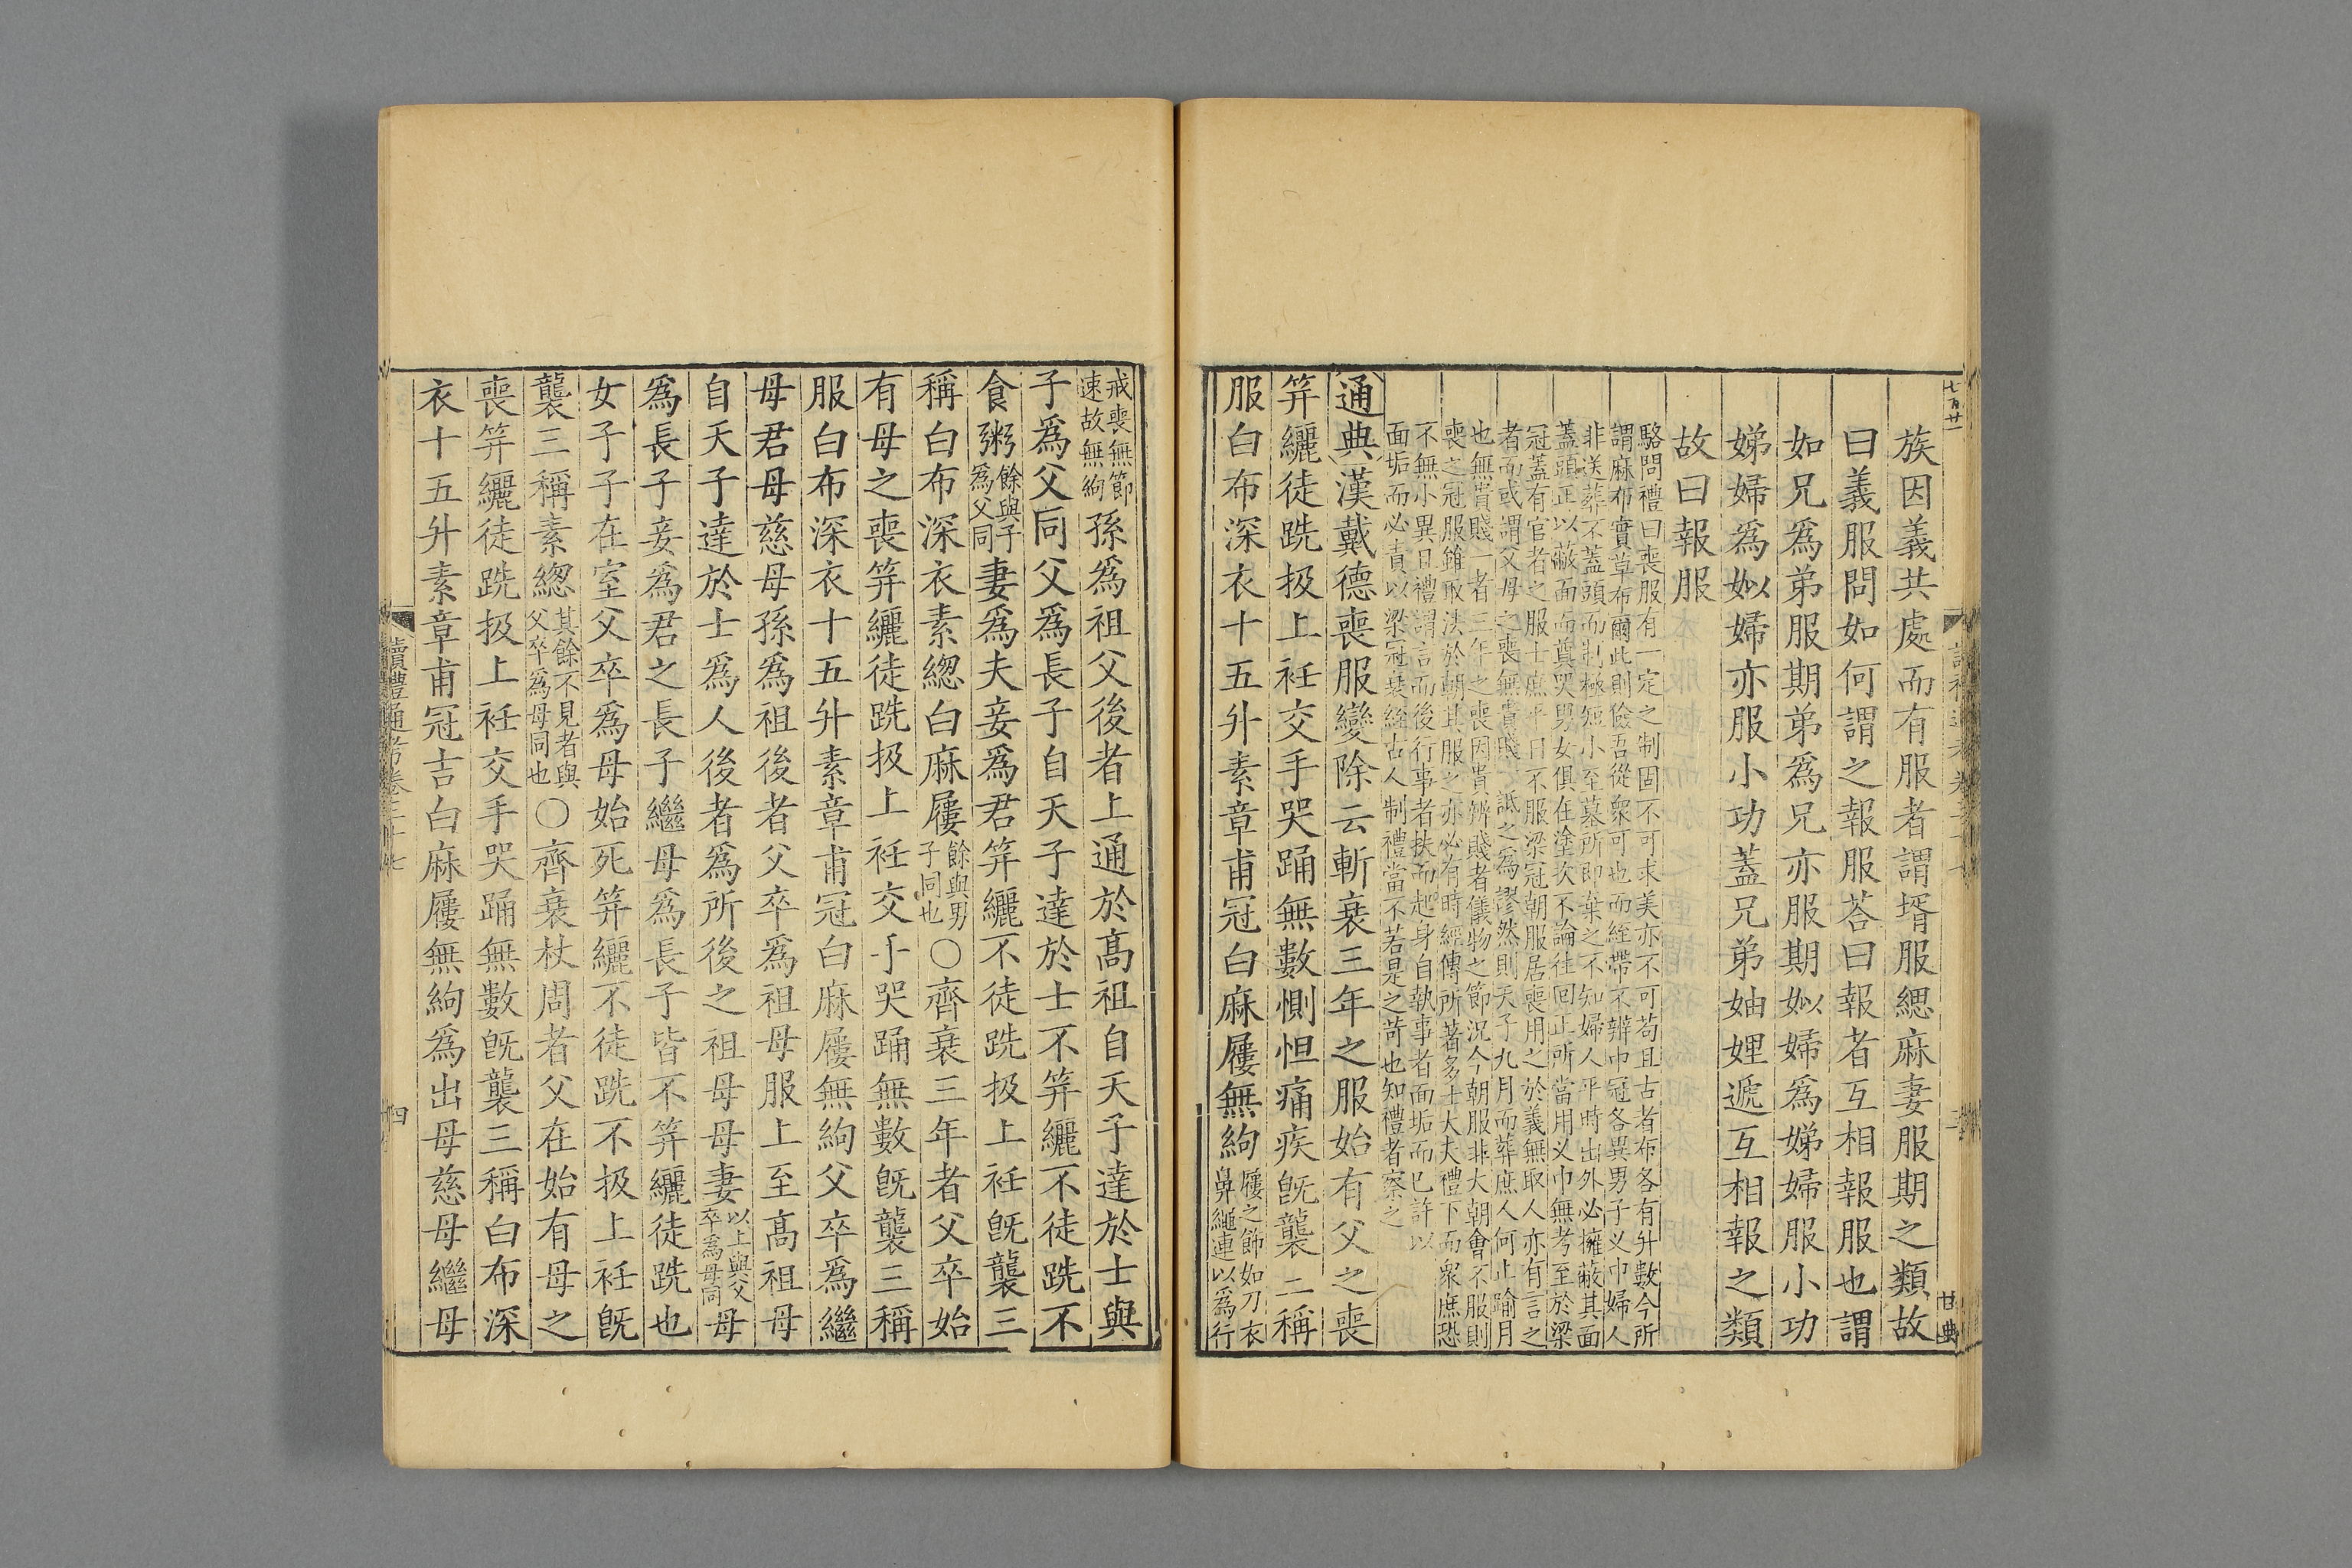 七百廿一
甘典
族因義共處而有服者謂壻服緦麻妻服期之類故
曰義服問如何謂之報服荅曰報者互相報服也謂
如兄爲弟服期弟爲兄亦服期姒婦爲娣婦服小功
娣婦爲姒婦亦服小功蓋兄弟妯娌遞互相報之類
故曰報服
駱問禮曰喪服有一定之制固不可求美亦不可苟且古者布各有升數今所
謂麻布實草布爾此則儉吾從衆可也而絰帶不辨巾冠各異男子义巾婦人
非送葬不蓋頭而制極短小至墓所即棄之不知婦人平時出外必擁蔽其面
蓋頭正以蔽面而奠哭男女俱在塗次不論往回正所當用义巾無考至於梁
冠蓋有官者之服士庶平日不服梁冠朝服居喪用之於義無取人亦有言之
者而或謂父母之喪無貴賤一詆之爲謬然則天子九月而葬庶人何止踰月
也無貴賤一者三年之喪因貴辨賤者儀物之節況今朝服非大朝會不服則
喪之冠服雖取法於朝其服之亦必有時經傳所著多士大夫禮下而衆庶恐
不無小異曰禮謂言而後行事者扶而起身自執事者面垢而已許以
面垢而必責以梁冠衰絰古人制禮當不若是之苛也知禮者察之
通典漢戴德喪服變除云斬衰三年之服始有父之喪
笄纚徒跣扱上衽交手哭踊無數惻怛痛疾既襲三稱
服白布深衣十五升素章甫冠白麻屨無絇屨之節如刀衣
鼻繩連以爲行
戒喪無節
速故無絇孫爲祖父後者上通於高祖自天子達於士與
子爲父同父爲長子自天子達於士不笄纚不徒跣不
食粥餘與子
爲父同妻爲夫妾爲君笄纚不徒跣扱上衽既襲三
稱白布深衣素總白麻屨餘與男
子同也〇齊衰三年者父卒始
有母之喪笄纚徒跣扱上衽交手哭踊無數既襲三稱
服白布深衣十五升素章甫冠白麻屨無絇父卒爲繼
母君母慈母孫爲祖後者父卒爲祖母服上至高祖母
自天子達於士爲人後者爲所後之祖母母妻以上與父
卒爲母同母
爲長子妾爲君之長子繼母爲長子皆不笄纚徒跣也
女子子在室父卒爲母始死笄纚不徒跣不扱上衽既
襲三稱素總其餘不見者與
父卒爲母同也〇齊衰杖周者父在始有母之
喪笄纚徒跣扱上衽交手哭踊無數既襲三稱白布深
衣十五升素章甫冠吉白麻屨無絇爲出母慈母繼母
讀禮通考卷三十七
四